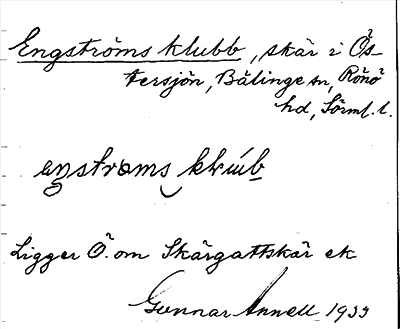 Engströms klubb, skär i Ös-
tersjön, Bälinge sn, Rönö
hd, Sörml. l.
eŋstrøms klub
Ligger Ö. om Skärgattskär ek
Gunnar Annell 1933